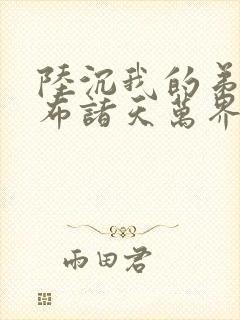 陸沉我的弟
布諸天萬界
雨田君